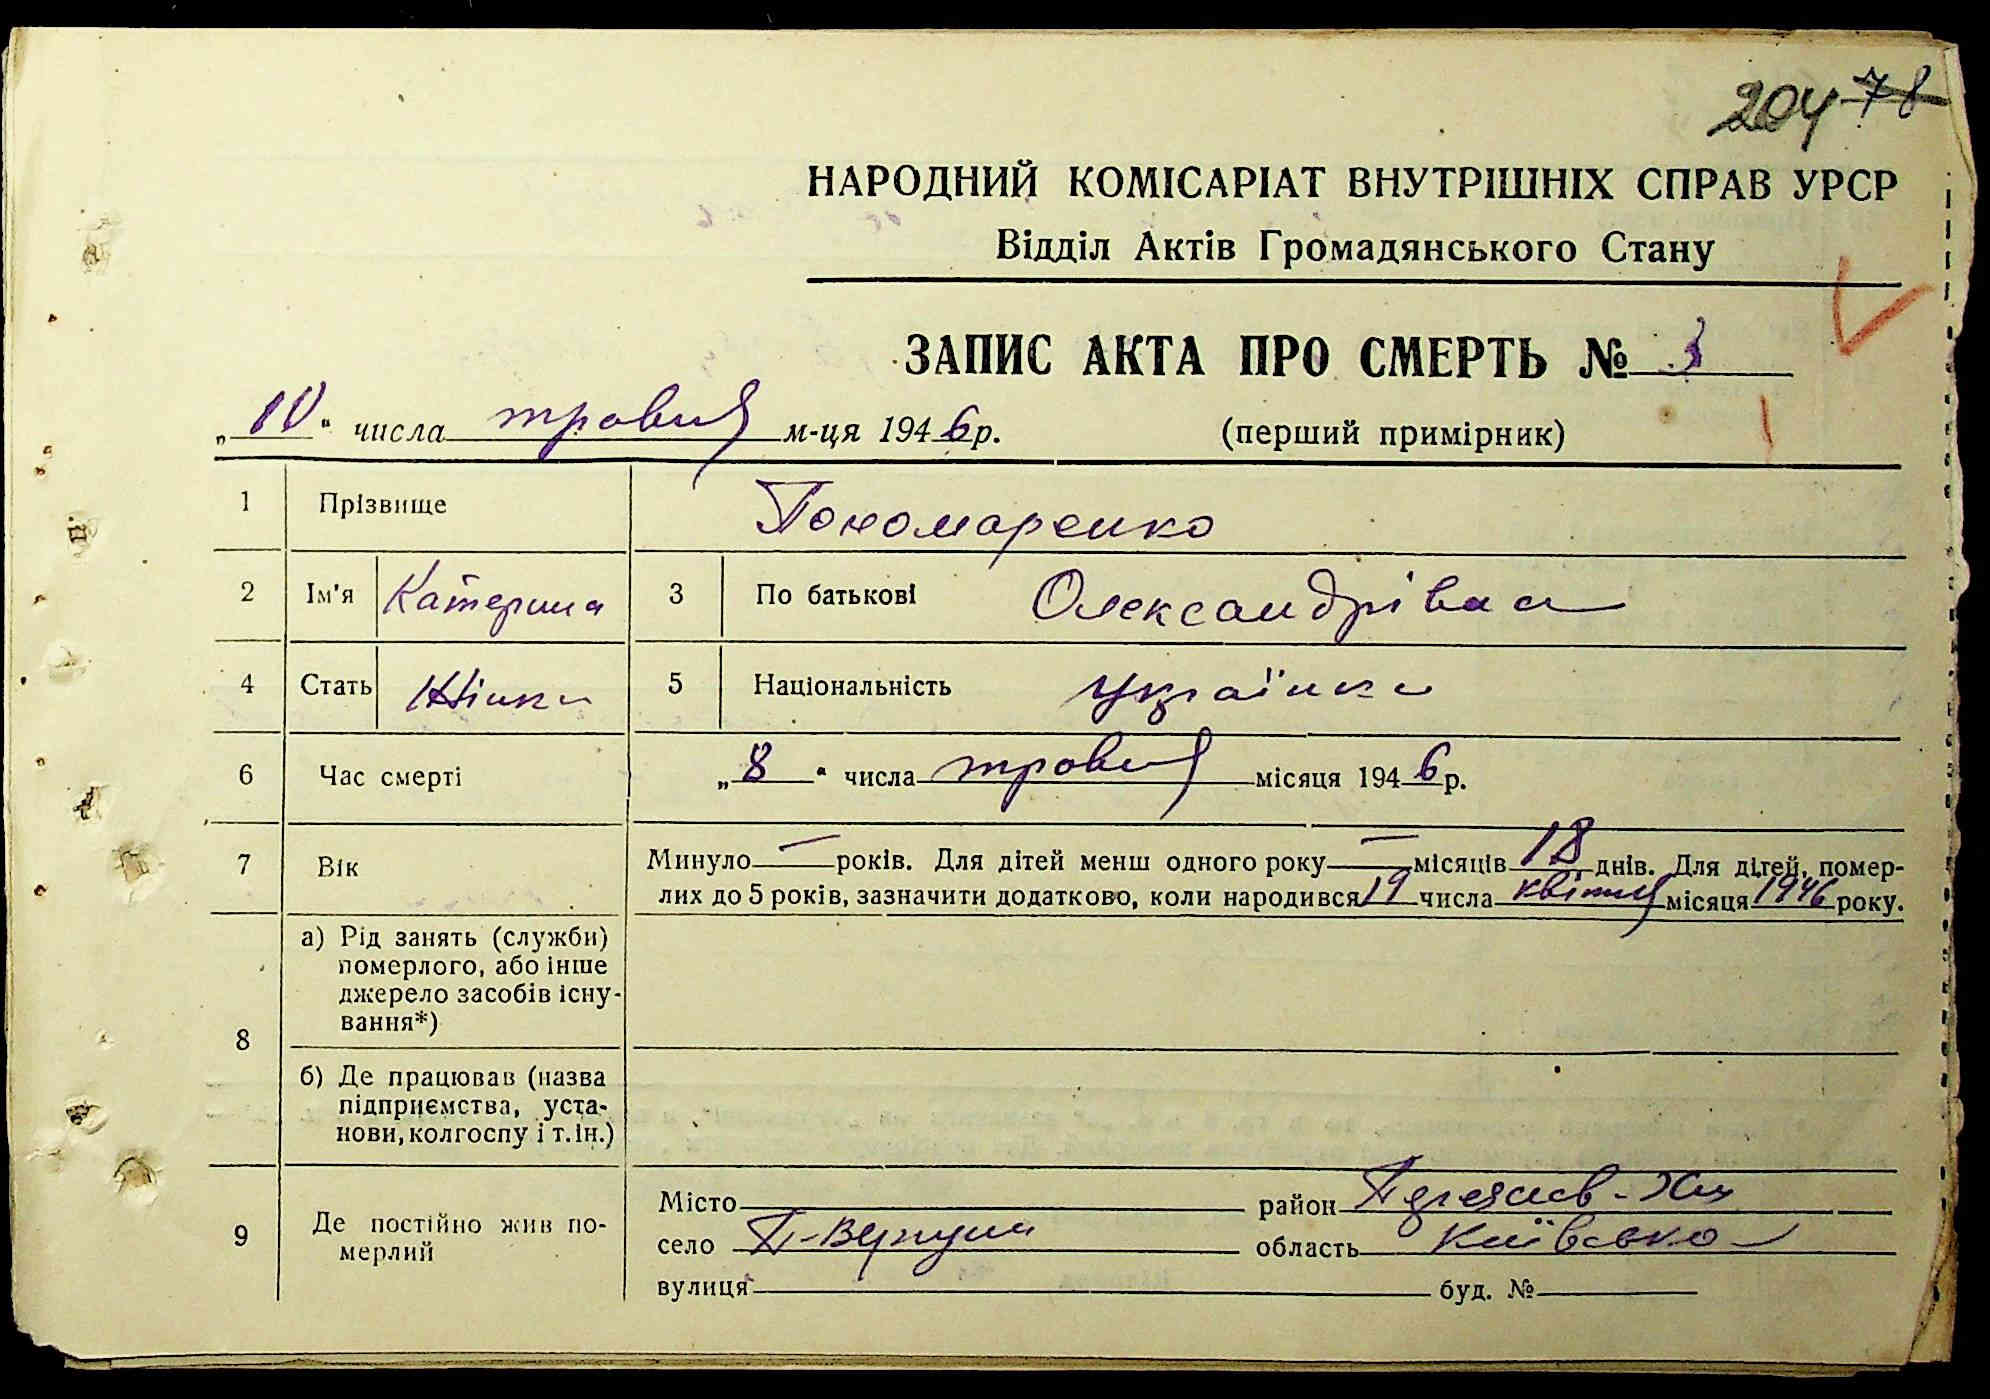 204 78
НАРОДНИЙ КОМІСАРІАТ ВНУТРІШНІХ СПРАВ УРСР
Відділ Актів Громадянського Стану
ЗАПИС АКТА ПРО СМЕРТЬ № 3
„10“ числа травня м-ця 1946 р. (перший примірник)
1 Прізвище Пономаренко
2 Ім'я Катерина 3 По батькові Олександрівна
4 Стать Жінка 5 Національність українка
6 Час смерті „8“ числа травня місяця 1946 р.
7 Вік Минуло — років. Для дітей менш одного року — місяців 18 днів. Для дітей, помер-
лих до 5 років, зазначити додатково, коли народився 19 числа квітня місяця 1946 року.
8 а) Рід занять (служби)
померлого, або інше
джерело засобів існу-
вання*)
б) Де працював (назва
підприємства, уста-
нови, колгоспу і т. ін.)
9 Де постійно жив по-
мерлий
Місто район Переяслав-Хм
село область Київсько
вулиця буд. №